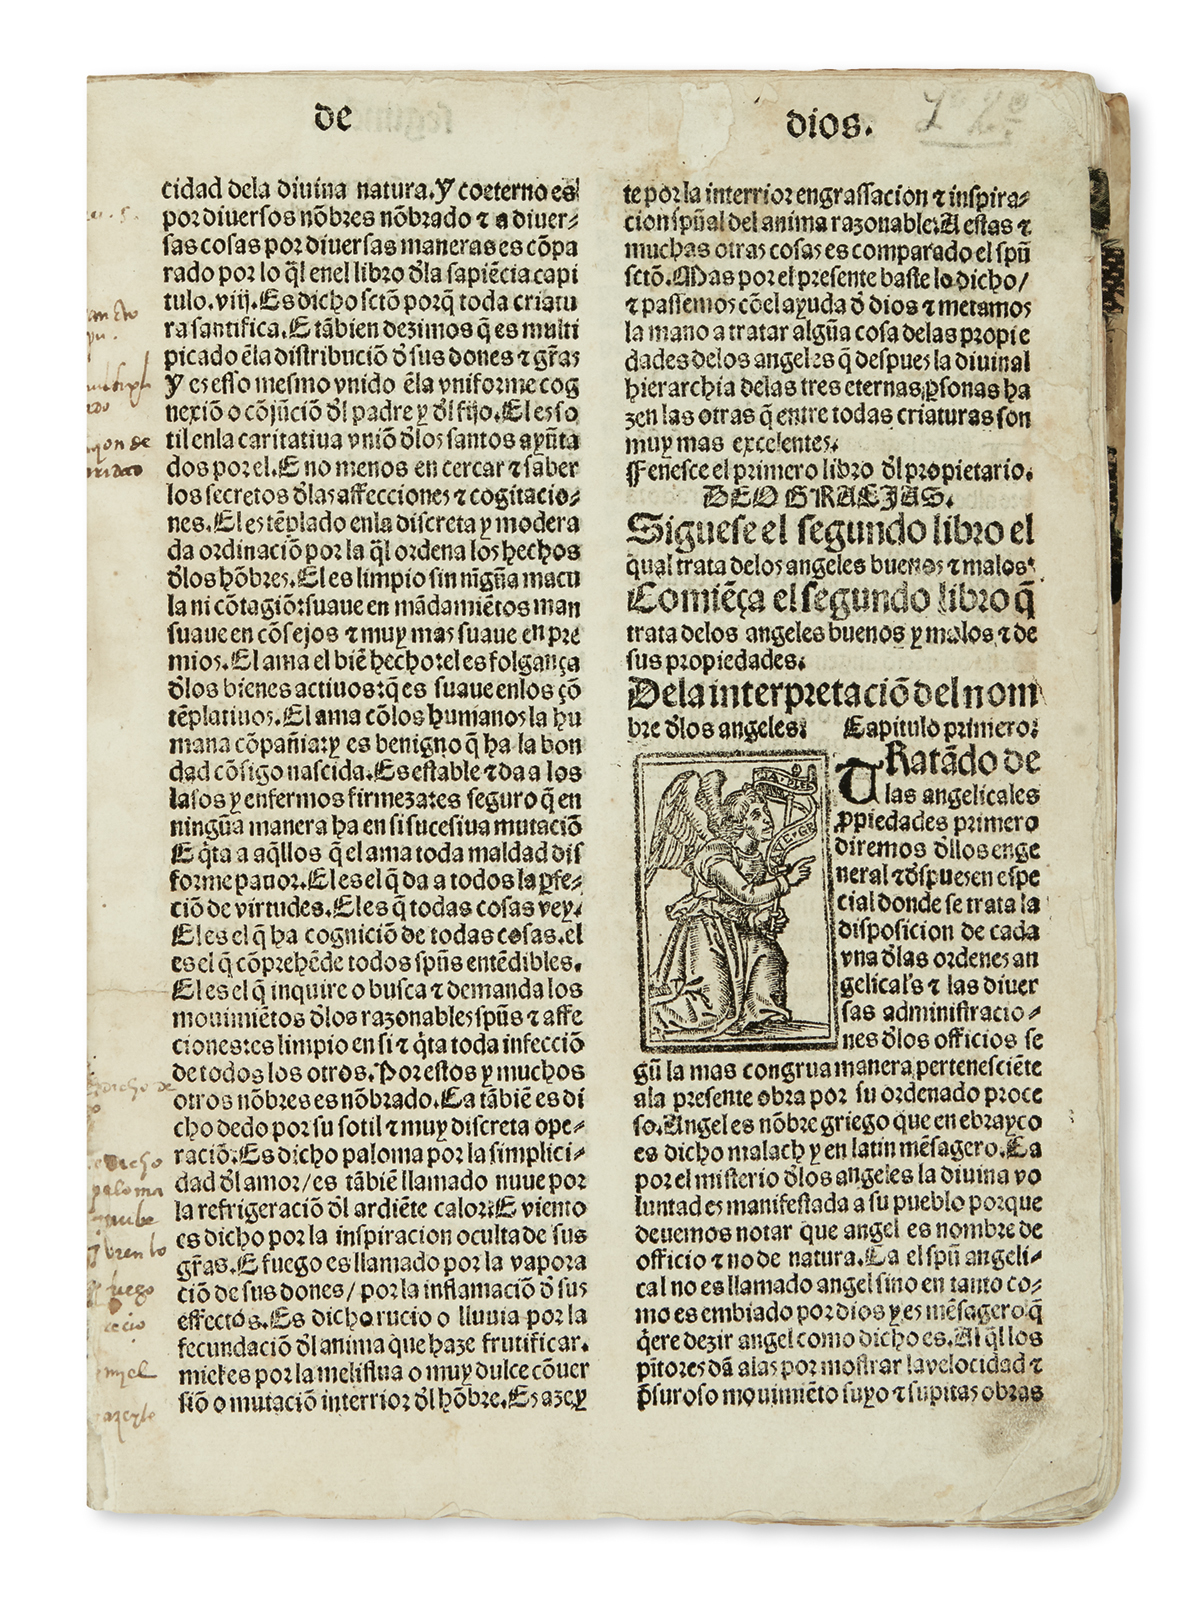 de dios.
cidad dela diuina natura. Y coeterno es
por diuersos nõbres nõbrado ⁊ a diuer-
sas cosas por diuersas maneras es cõpa
rado por lo q̃l enel libro d̃la sapiẽcia capi
tulo. viij. Es dicho sctõ porq̃ toda criatu
ra santifica. E tãbien dezimos q̃ es multi
picado ẽla distribuciõ d̃ sus dones ⁊ gr̃as
Y es esso mesmo vnido ẽla vniforme cog
nexiõ o cõjũciõ d̃l padre y d̃l fijo. El es so
til enla caritatiua vniõ d̃los santos ayũta
dos por el. E no menos en cercar ⁊ saber
los secretos d̃las affecciones ⁊ cogitacio-
nes. El es tẽplado enla discreta y modera
da ordinaciõ por la q̃l ordena los hechos
d̃los hõbres. El es limpio sin nĩgũa macu
la ni cõtagiõ: suaue en mãdamiẽtos man
suaue en cõsejos ⁊ muy mas suaue en pre
mios. El ama el biẽ hecho: el es folgança
d̃los bienes actiuos: q̃ es suaue enlos cõ
tẽplatiuos. El ama cõlos humanos la hu
mana cõpañia: y es benigno q̃ ha la bon
dad cõsigo nascida. Es estable ⁊ da a los
lasos y enfermos firmeza: es seguro q̃ en
ningũa manera ha en si sucesiua mutaciõ
E q̃ta a aq̃llos q̃ el ama toda maldad dis
forme pauor. El es el q̃ da a todos la ꝑfe-
ciõ de virtudes. El es q̃ todas cosas vey.
El es el q̃ ha cogniciõ de todas cosas. el
es el q̃ cõprehẽde todos spũs entẽdibles.
El es el q̃ inquire o busca ⁊ demanda los
mouimiẽtos d̃los razonables spũs ⁊ affe
ciones: es limpio en si ⁊ q̃ta toda infecciõ
de todos los otros. Por estos y muchos
otros nõbres es nõbrado. Ca tãbiẽ es di
cho dedo por su sotil ⁊ muy discreta ope-
raciõ. Es dicho paloma por la simplici-
dad d̃l amor/ es tãbiẽ llamado nuue por
la refrigeraciõ d̃l ardiẽte calor: E viento
es dicho por la inspiracion oculta de sus
gr̃as. E fuego es llamado por la vapora
ciõ de sus dones/ por la inflamaciõ d̃ sus
effectos. Es dicho rucio o lluuia por la
fecundaciõ d̃l anima que haze frutificar.
mieles por la meliflua o muy dulce cõuer
siõ o mutaciõ interrior d̃l hõbre. Es azey
te por la interrior engrassacion ⁊ inspira-
cion spũal del anima razonable. A estas ⁊
muchas otras cosas es comparado el spũ
sctõ. Mas por el presente baste lo dicho/
⁊ passemos cõel ayuda d̃ dios ⁊ metamos
la mano a tratar algũa cosa delas propie
dades delos angeles q̃ despues la diuinal
hierarchia delas tres eternas ꝑsonas ha
zen las otras q̃ entre todas criaturas son
muy mas excelentes.
Fenesce el primero libro d̃l propietario.
DEO GRACIAS.
Siguese el segundo libro el
qual trata delos angeles buenos ⁊ malos
Comiẽça el segundo libro q̃
trata delos angeles buenos y malos ⁊ de
sus propiedades.
Dela interpretaciõ del nom
bre d̃los angeles: Capitulo primero:
Tratãdo de
las angelicales
ꝓpiedades primero
diremos d̃llos en ge
neral ⁊ d̃spues en espe
cial donde se trata la
disposicion de cada
vna d̃las ordenes an
gelical's ⁊ las diuer
sas administracio-
nes d̃los officios se
gũ la mas congrua manera pertenesciẽte
ala presente obra por su ordenado proce
so. Angel es nõbre griego que en ebrayco
es dicho malach y en latin mẽsagero. Ca
por el misterio d̃los angeles la diuina vo
luntad es manifestada a su pueblo porque
deuemos notar que angel es nombre de
officio ⁊ no de natura. Ca el spũ angeli-
cal no es llamado angel sino en tanto co-
mo es embiado por dios y es mẽsagero q̃
q̃ere dezir angel como dicho es. Al q̃l los
pĩtores dã alas por mostrar la velocidad ⁊
p̃suroso mouimiẽto suyo ⁊ supitas obras
dicho de
dicho
paloma
nube
fuego
miel
azeyte